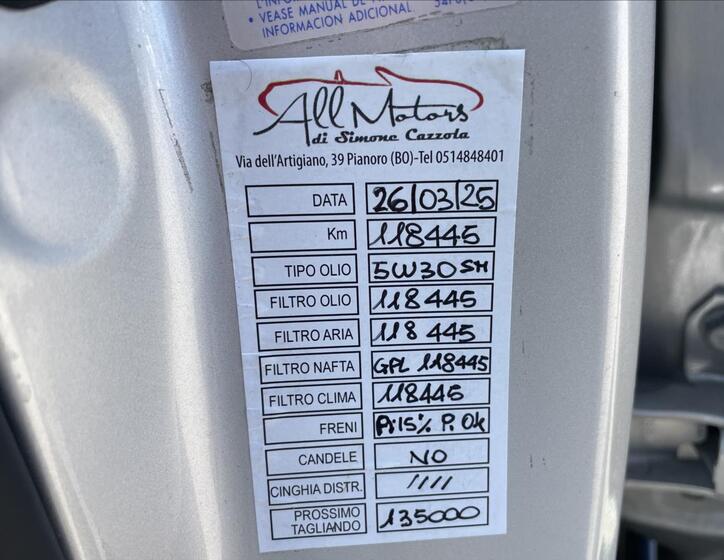 • VEASE MANUAL DE
INFORMACION ADICIONAL
All Motors
di Simone Cazzola
Via dell'Artigiano, 39 Pianoro (BO)-Tel 0514848401
DATA 26/03/25
Km 118445
TIPO OLIO 5W30 SM
FILTRO OLIO 118445
FILTRO ARIA 118445
FILTRO NAFTA GPL 118445
FILTRO CLIMA 118445
FRENI A:15% P. Ok
CANDELE NO
CINGHIA DISTR. ////
PROSSIMO
TAGLIANDO 135000